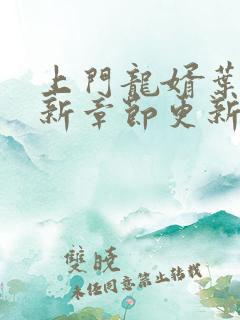 上門龍婿葉
新章節更新
雙曉
未經同意禁止轉載